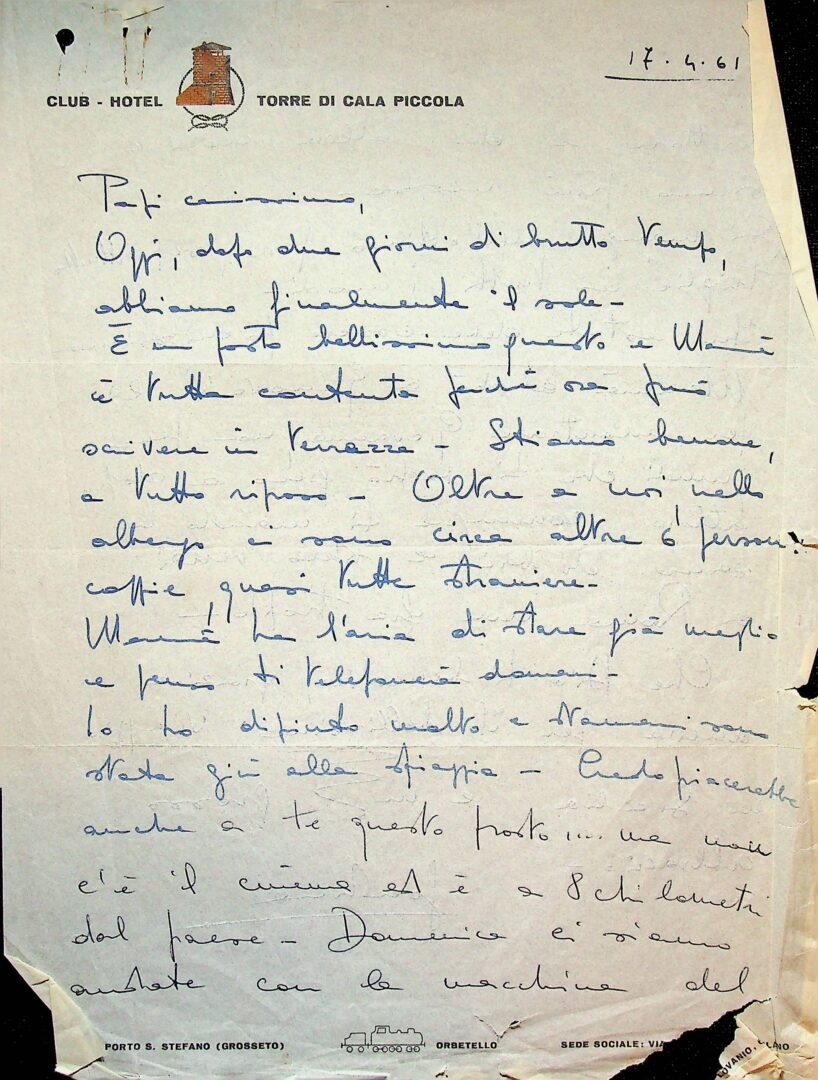 17.4.61
CLUB - HOTEL TORRE DI CALA PICCOLA
Papi carissimo,
Oggi, dopo due giorni di brutto tempo,
abbiamo finalmente il sole -
È un posto bellissimo questo e Mamà
è tutta contenta perché ora può
scrivere in terrazza - Stiamo benone,
a tutto riposo - Oltre a noi, nello
albergo ci sono circa altre 6 persone:
coppie, quasi tutte straniere -
Mamà ha l'aria di stare già meglio
e penso ti telefonerà domani -
Io ho dipinto molto e stamani sono
stata giù alla spiaggia - Credo piacerebbe
anche a te questo posto .... ma non
c'è il cinema ed è a 8 chilometri
dal paese - Domenica ci siamo
andate con la macchina del
PORTO S. STEFANO (GROSSETO) ORBETELLO SEDE SOCIALE: VIA